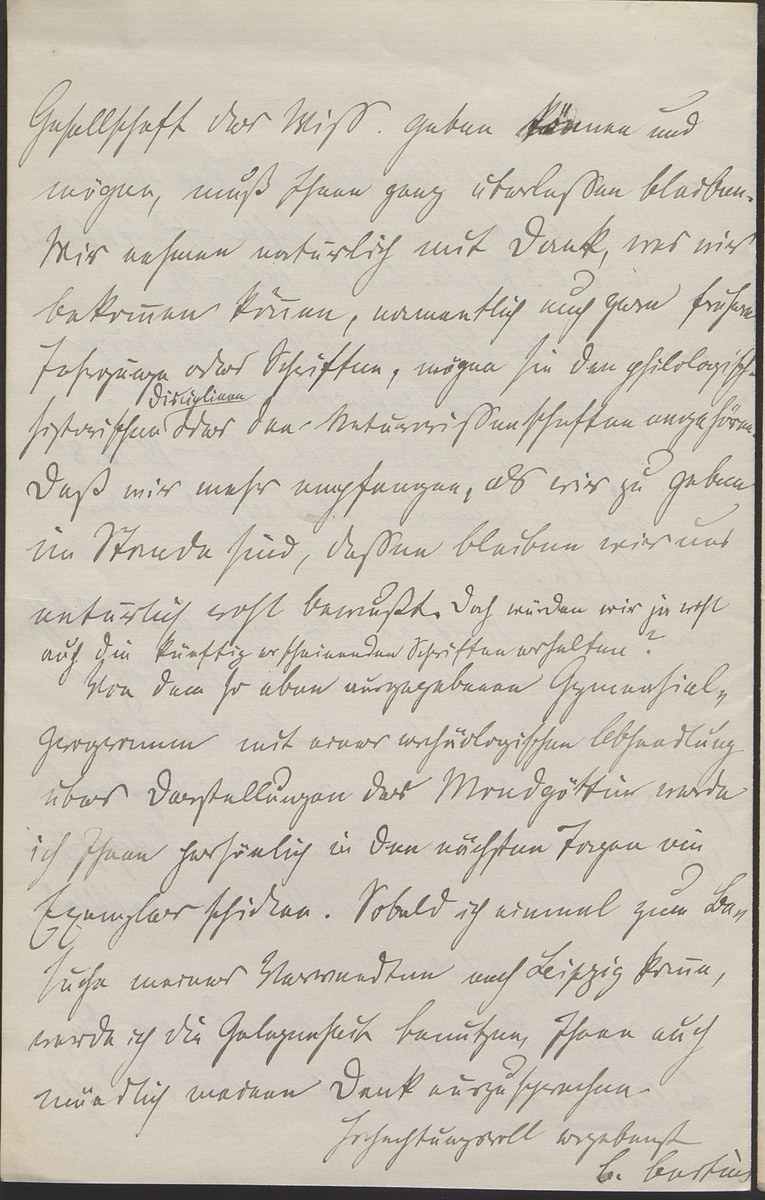 Gesellschaft der Wiss. geben können und
mögen, muß Ihnen ganz überlassen bleiben.
Wir nehmen natürlich mit Dank, was wir
bekommen können, namentlich auch gern frühere
Jahrgänge oder Schriften, mögen sie den philologisch-
historischen Disciplinen oder den Naturwissenschaften angehören.
Daß wir mehr empfangen, als wir zu geben
im Stande sind, dessen bleiben wir uns
natürlich wohl bewußt. Doch würden wir ja wohl
auch die künftig erscheinenden Schriften erhalten?
Von dem so eben ausgegebenen Gymnasial-
programm mit einer archäologischen Abhandlung
über Darstellungen der Mondgöttin werde
ich Ihnen persönlich in den nächsten Tagen ein
Exemplar schicken. Sobald ich einmal zum Be-
suche meiner Verwandten nach Leipzig komme,
werde ich die Gelegenheit benutzen, Ihnen auch
mündlich meinen Dank auszusprechen.
Hochachtungsvoll ergebenst